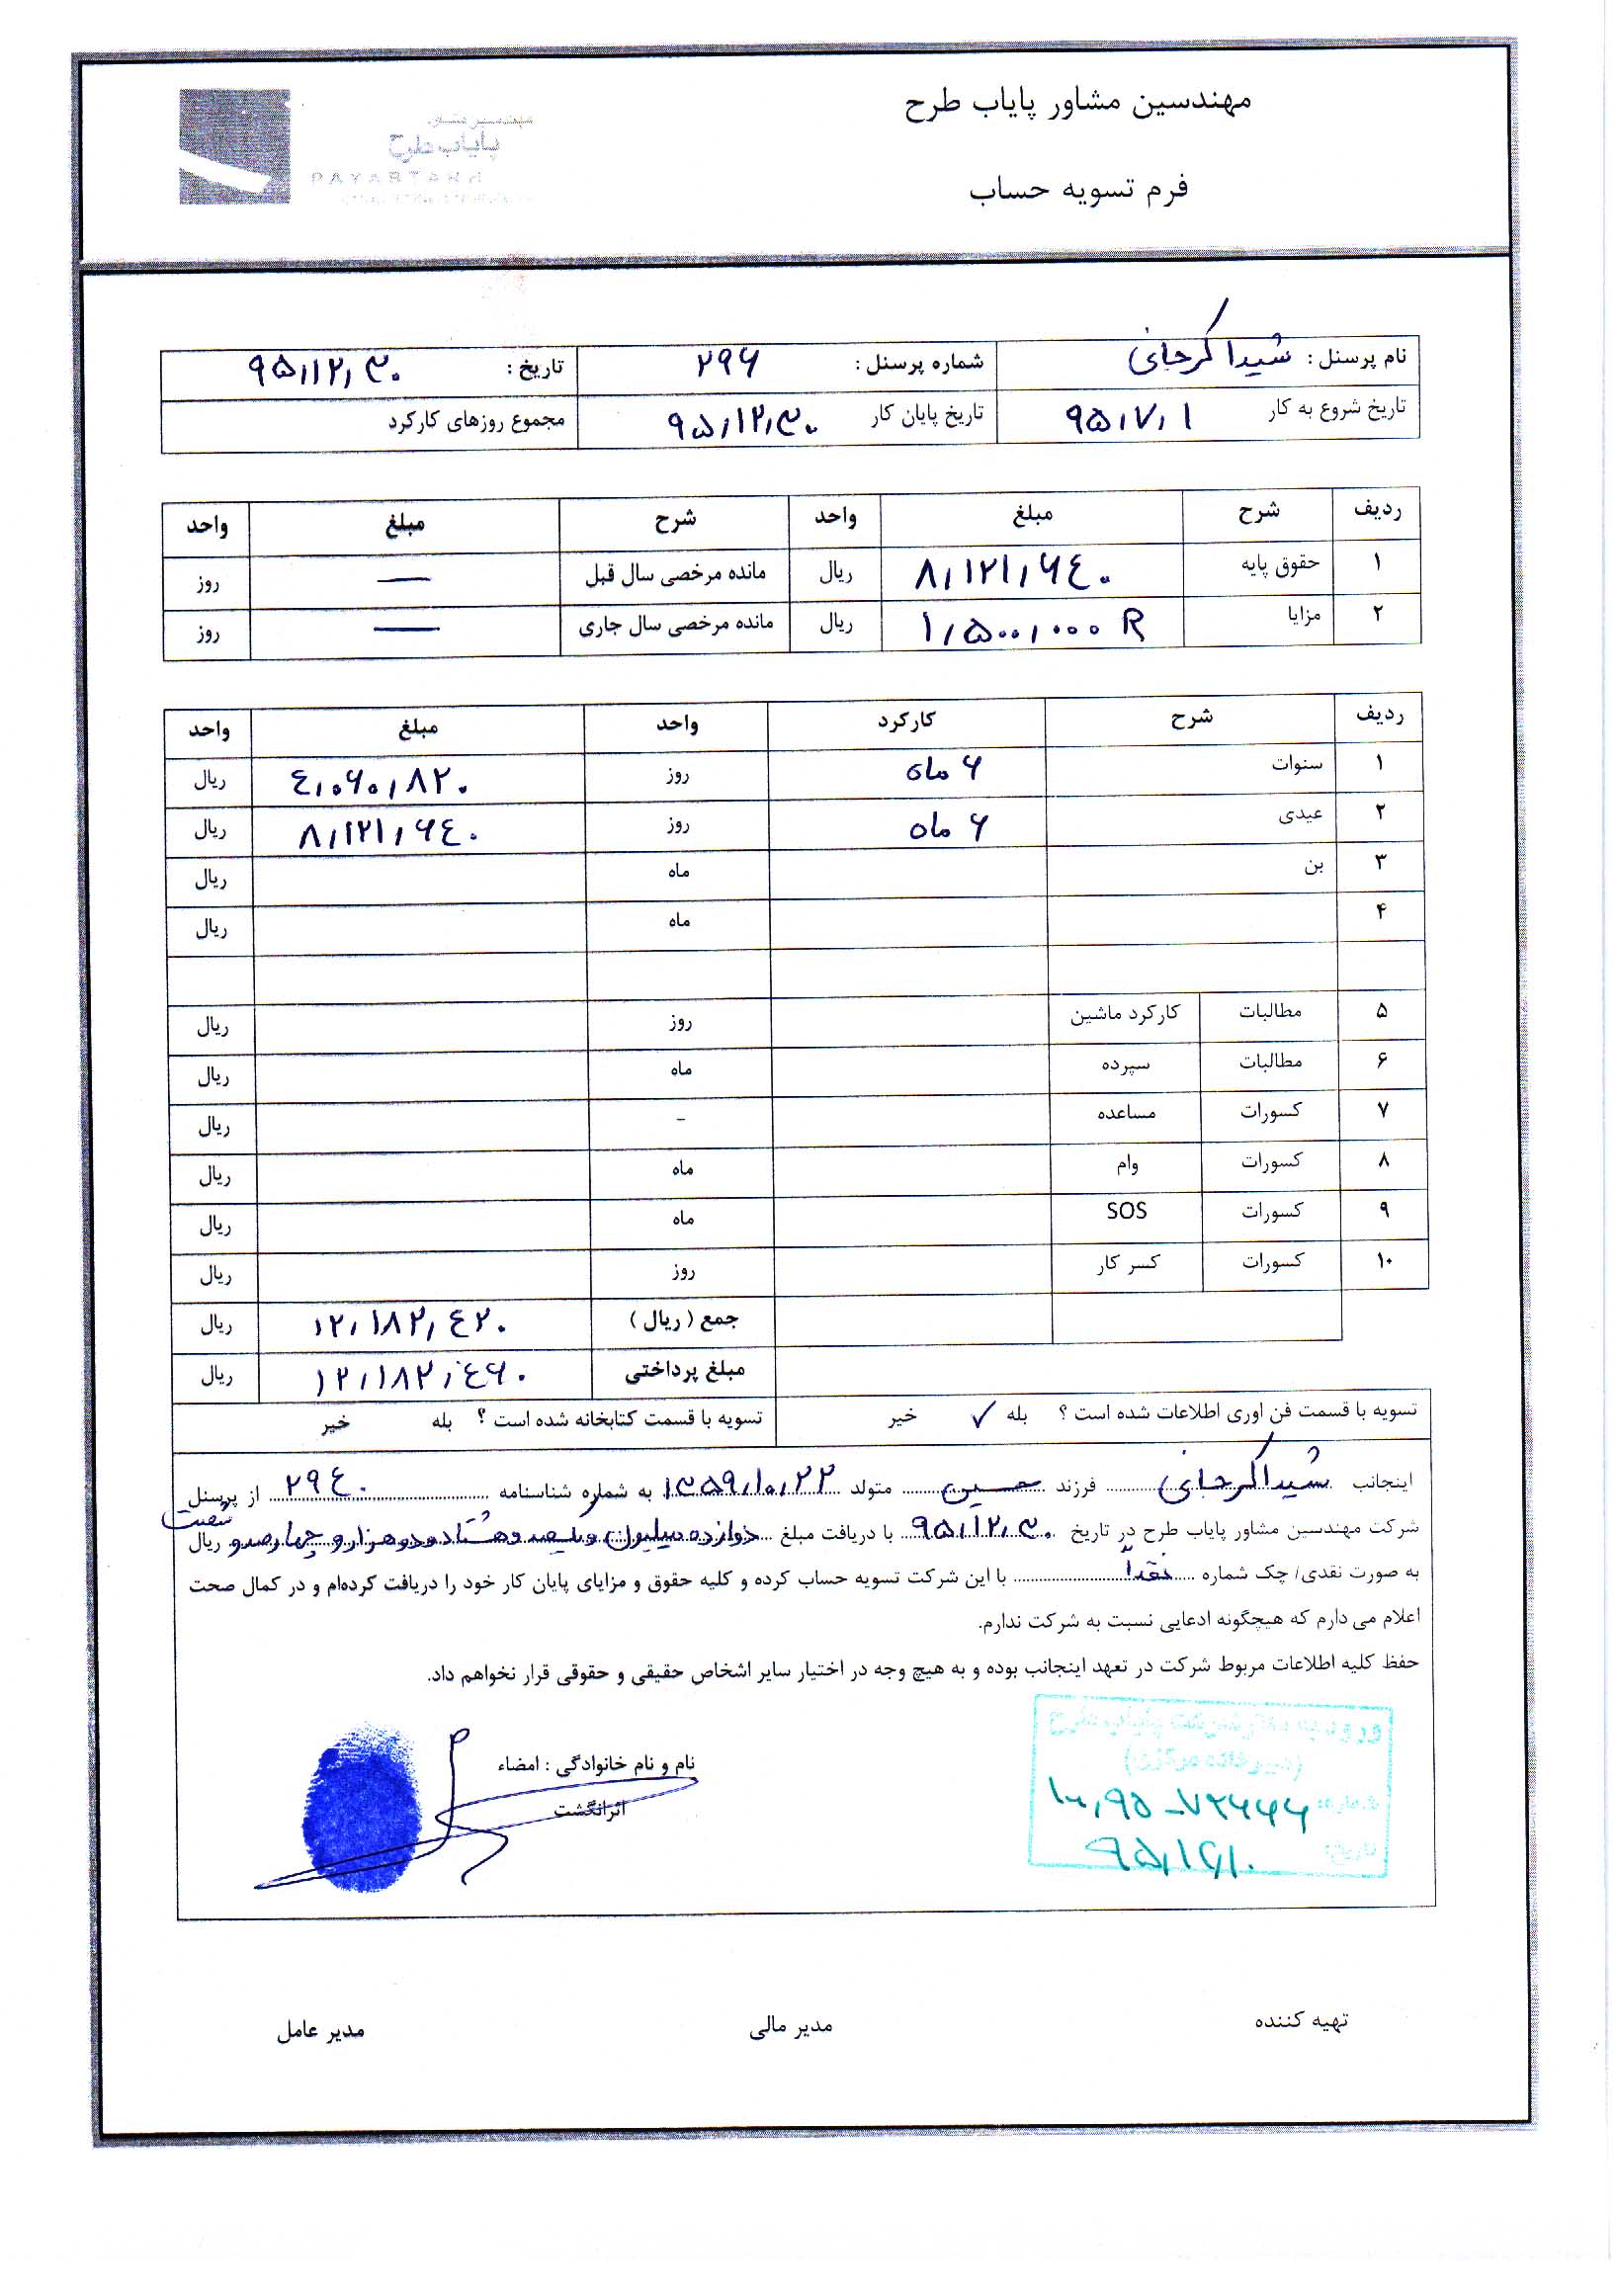 مهندسین مشاور پایاب طرح
فرم تسویه حساب
پایاب طرح
PAYABTARH
نام پرسنل : شیدا کرجانی شماره پرسنل : ۲۹۶ تاریخ : ۹۵,۱۲,۳۰
تاریخ شروع به کار ۹۵,۷,۱ تاریخ پایان کار ۹۵,۱۲,۳۰ مجموع روزهای کارکرد
ردیف شرح مبلغ واحد شرح مبلغ واحد
۱ حقوق پایه ۸,۱۲۱,۶۴۰ ریال مانده مرخصی سال قبل — روز
۲ مزایا ۱,۵۰۰,۰۰۰ R ریال مانده مرخصی سال جاری — روز
ردیف شرح کارکرد واحد مبلغ واحد
۱ سنوات ۶ ماه روز ۴,۰۶۰,۸۲۰ ریال
۲ عیدی ۶ ماه روز ۸,۱۲۱,۶۴۰ ریال
۳ بن ماه ریال
۴ ماه ریال
۵ مطالبات کارکرد ماشین روز ریال
۶ مطالبات سپرده ماه ریال
۷ کسورات مساعده - ریال
۸ کسورات وام ماه ریال
۹ کسورات SOS ماه ریال
۱۰ کسورات کسر کار روز ریال
جمع ( ریال ) ۱۲,۱۸۲,۴۲۰ ریال
مبلغ پرداختی ۱۲,۱۸۲,۴۶۰ ریال
تسویه با قسمت فن اوری اطلاعات شده است ؟ بله ✓ خیر تسویه با قسمت کتابخانه شده است ؟ بله خیر
اینجانب شیدا کرجانی فرزند حسین متولد ۱۳۵۹,۱۰,۲۲ به شماره شناسنامه ۲۹۴۰ از پرسنل
شرکت مهندسین مشاور پایاب طرح در تاریخ ۹۵,۱۲,۳۰ با دریافت مبلغ دوازده میلیون و یکصد و هشتاد و دو هزار و چهارصد و شصت ریال
به صورت نقدی/ چک شماره نقداً با این شرکت تسویه حساب کرده و کلیه حقوق و مزایای پایان کار خود را دریافت کرده‌ام و در کمال صحت
اعلام می دارم که هیچگونه ادعایی نسبت به شرکت ندارم.
حفظ کلیه اطلاعات مربوط شرکت در تعهد اینجانب بوده و به هیچ وجه در اختیار سایر اشخاص حقیقی و حقوقی قرار نخواهم داد.
نام و نام خانوادگی : امضاء
اثرانگشت
تهیه کننده مدیر مالی مدیر عامل